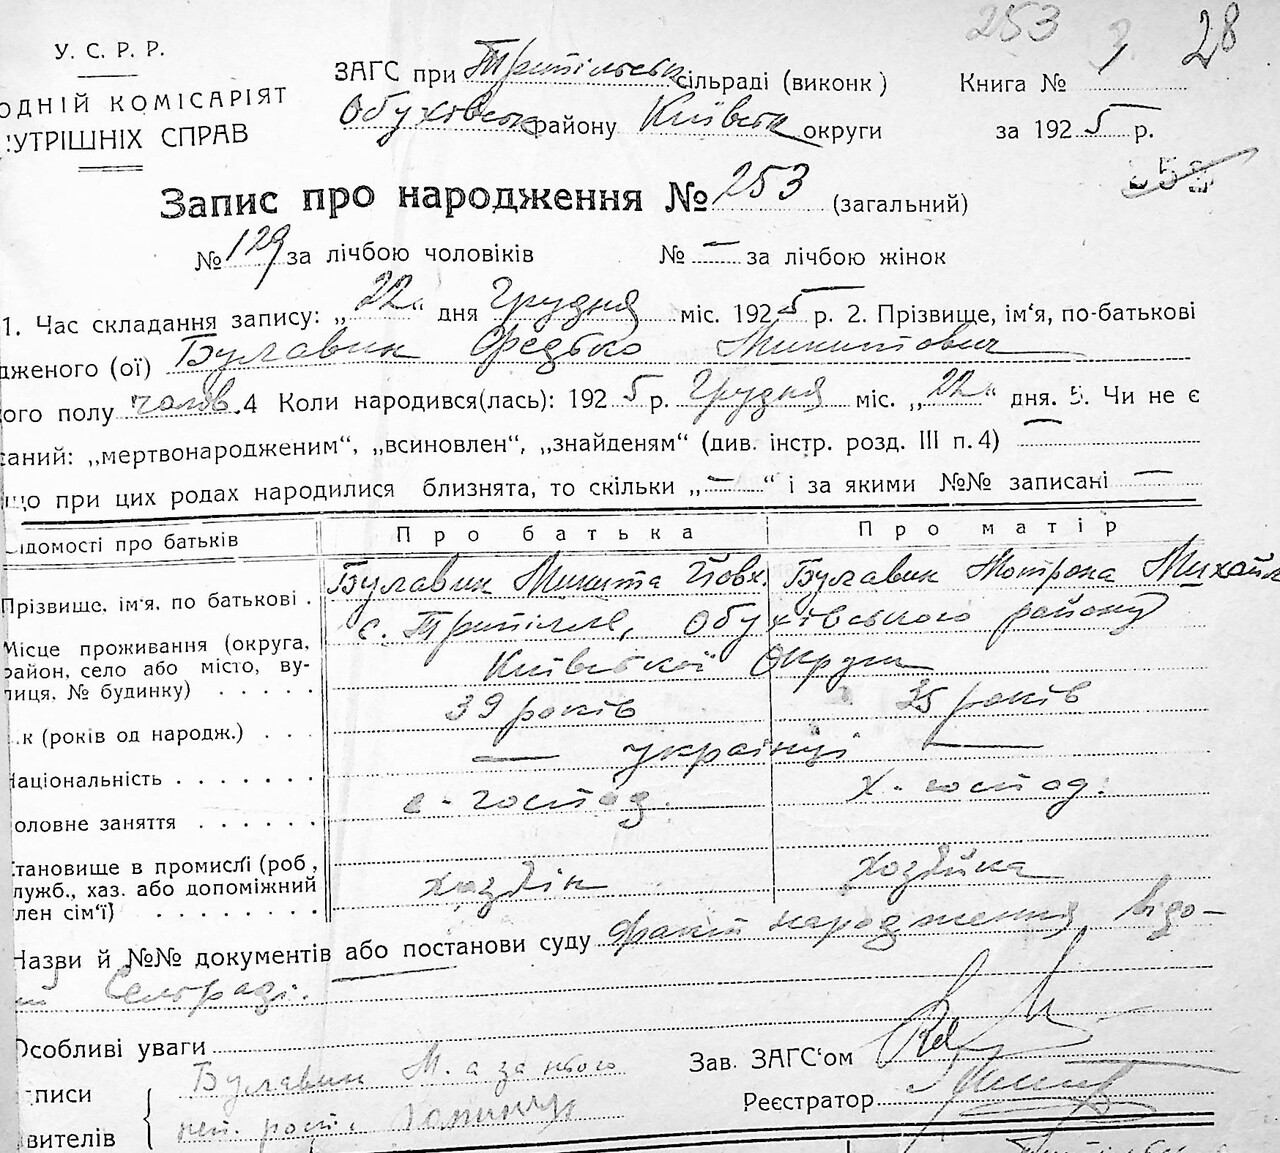 253
28
У. С. Р. Р.
ОДНІЙ КОМІСАРІЯТ
УТРІШНІХ СПРАВ
ЗАГС при Трипільськ сільраді (виконк)
Обухівськ району Київськ округи
Книга №
за 1925 р.
Запис про народження № 253 (загальний)
№ 129 за лічбою чоловіків № — за лічбою жінок
1. Час складання запису: „22“ дня Грудня міс. 1925 р. 2. Прізвище, ім'я, по-батькові
дженого (ої) Булавин Федько Микитович
ого полу чолов. 4 Коли народився(лась): 1925 р. Грудня міс. „22“ дня. 5. Чи не є
саний: „мертвонародженим“, „всиновлен“, „знайденям“ (див. інстр. розд. III п. 4) —
що при цих родах народилися близнята, то скільки „—“ і за якими №№ записані —
ідомості про батьків Про батька Про матір
Прізвище, ім'я, по батькові . Булавин Микита Йовх. Булавин Мотрона Михайл
Місце проживання (округа, с. Трипілле, Обухівського району
район, село або місто, ву- Київської Округи
лиця, № будинку) . . . . .
к (років од народж.) . . . 39 років 35 років
Національність . . . . . . . — українці —
оловне заняття . . . . . . с-господ. х.-господ.
тановище в промислі (роб.,
лужб., хаз. або допоміжний хазяїн хозяйка
лен сім'ї) . . . . . . . .
Назви й №№ документів або постанови суду Факт народження відо-
Сельраді.
Особливі уваги
Зав. ЗАГС'ом
писи Булавин М. а за нього
Реєстратор
вителів неп. рост.